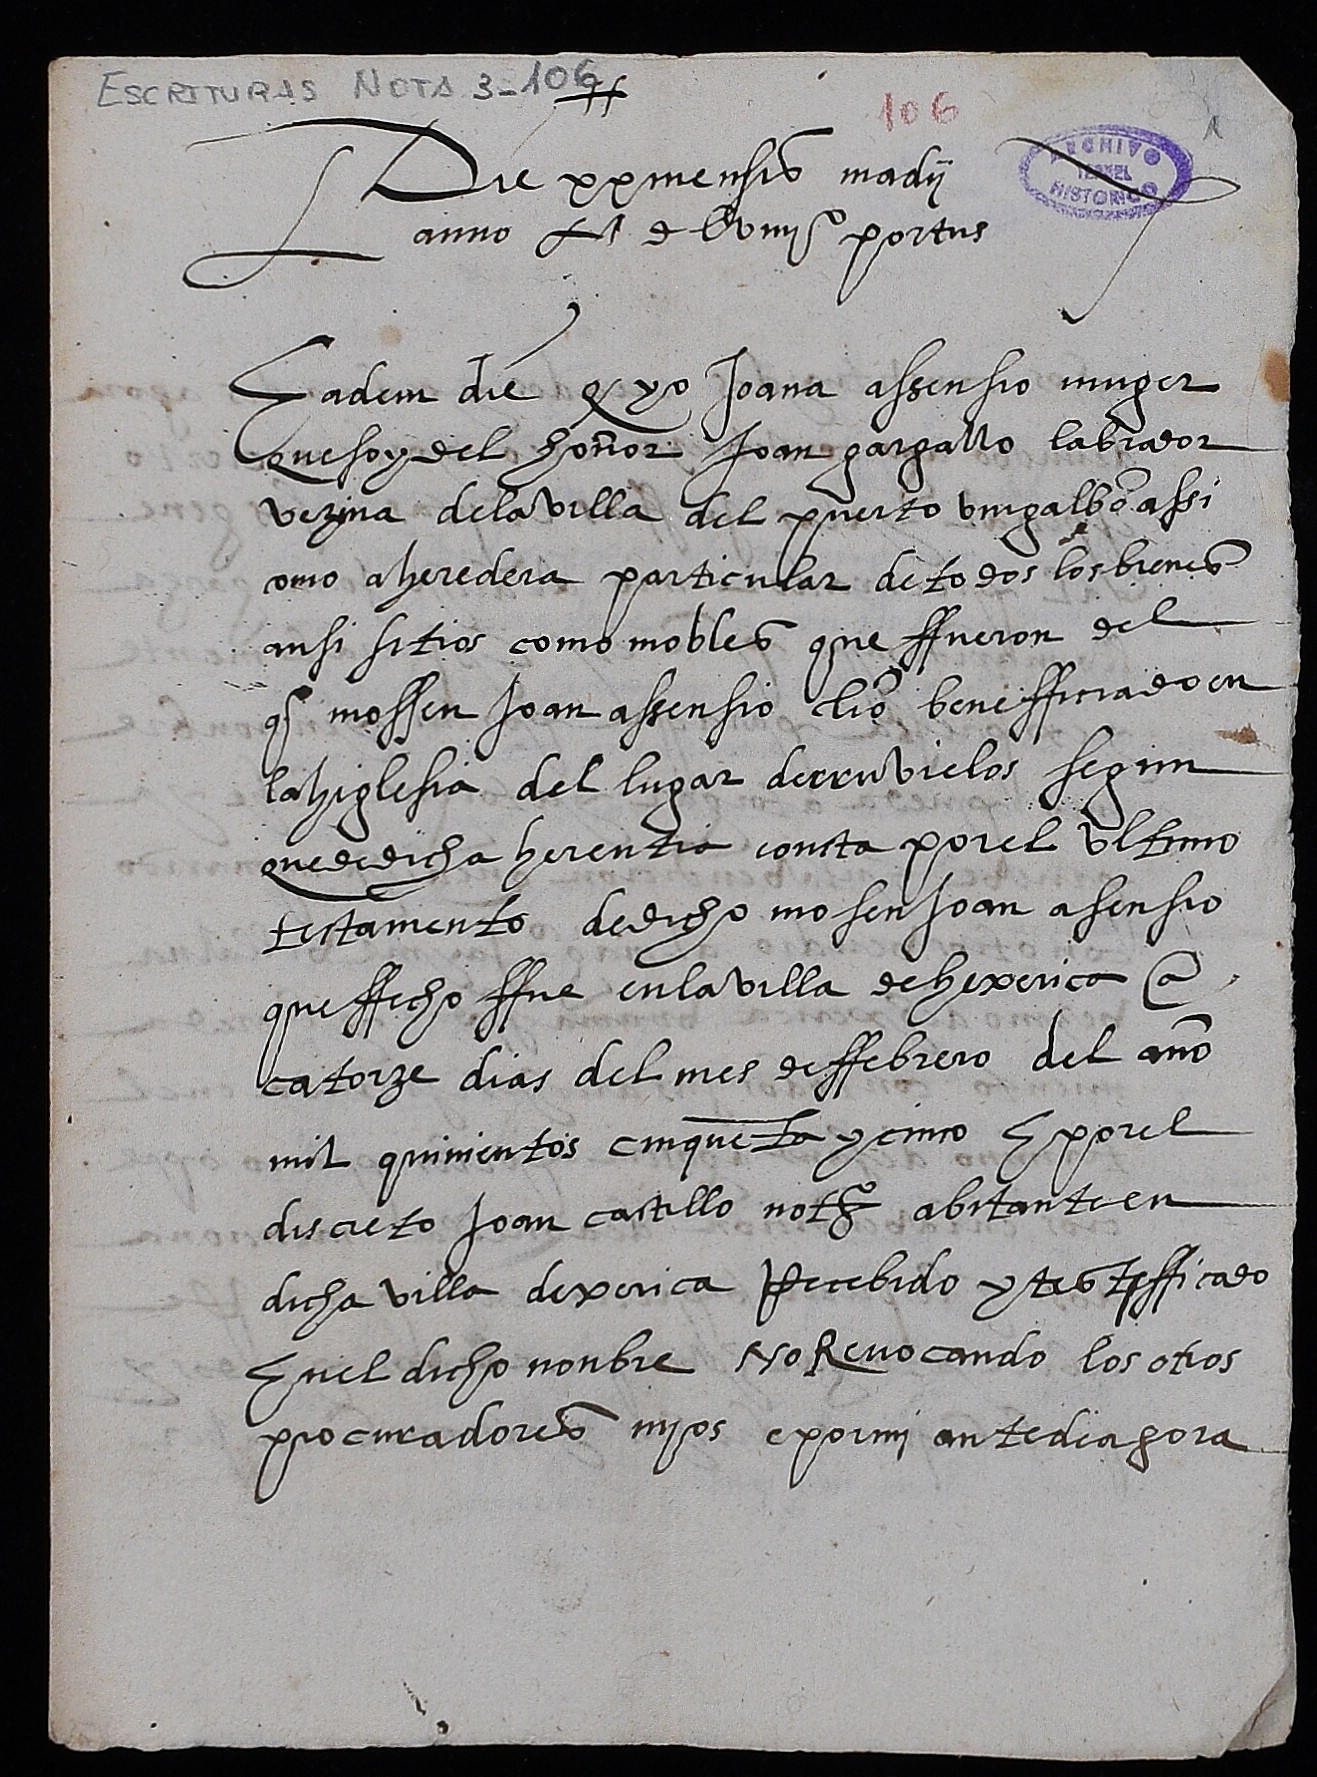 ESCRITURAS NOTA 3-106
106
1
ARCHIVO
TERUEL
HISTORICO
Die xx mensis madij
anno portus
Eadem die q yo Joana assensio muger
que soy del honor Joan gargallo labrador
vezina dela villa del puerto mingalbo assi
como a heredera particular de todos los bienes
ansi sitios como mobles que ffueron del
q° mossen Joan assensio clio benefficiado en
la higlesia del lugar derruvielos segun
que de dicha herentia consta por el ultimo
testamento de dicho mosen Joan asensio
que ffecho ffue en la villa de hexerica a
catorze dias del mes de ffebrero del año
mil quinientos cinqueta y cinco E por el
discreto Joan castillo not° abitante en
dicha villa dexerica Recebido y testifficado
En el dicho nonbre No Revocando los otros
procuradores mios e por mi antes de agora